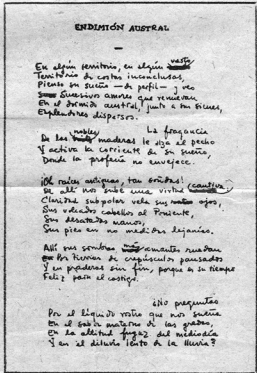 ENDIMIÓN AUSTRAL
En algún territorio, en algún vasto
Territorio de costas inconclusas,
Pienso su sueño —de perfil— y veo
Sucesivos amores que renuevan
En el dormido austral, junto a sus sienes,
Esplendores dispersos.
La fragancia
De las nobles maderas le alza el pecho
Y activa la corriente de su sueño,
Donde la profecía no envejece.
¡Oh raíces antiguas, tan sondas!
De allí nos sube una virtud cautiva
Claridad subpolar vela sus ojos,
Sus volcados cabellos al Poniente,
Sus desatadas manos,
Sus pies en no medidas lejanías.
Allí sus sombras amantes ruedan
Por tierras de crepúsculos pausados
Y en praderas sin fin, porque es su tiempo
Feliz para el castigo.
¿No preguntas
Por el líquido rostro que nos sueña
En el sabor materno de las gredas,
En la altitud fugaz del mediodía
Y en el diluvio lento de la lluvia?